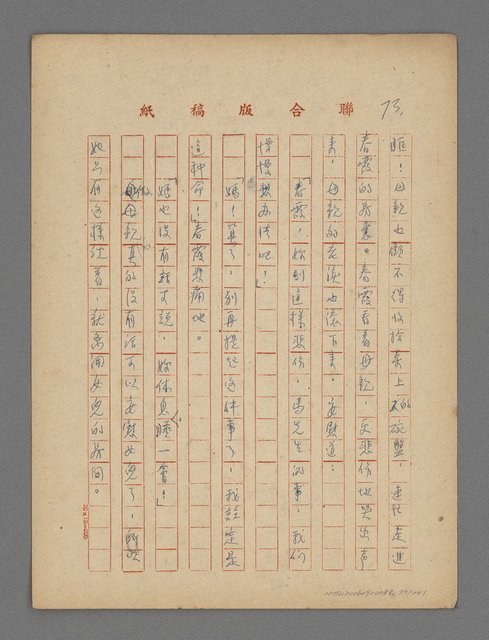 聯合版稿紙
73.
睢!母親也顧不得收拾桌上的碗盤,連忙走進
春霞的房裏。春霞看着母親,又悲傷地哭出聲
來,母親的老淚也滾下來,安慰道:
「春霞,妳別這樣悲傷,馬先生的事,我們
慢慢想辦法吧!」
「媽!算了,別再提起這件事了,我註定是
這种命!」春霞悲痛地。
「媽也沒有話可說,妳休息睡一會!」
做母親真的沒有話可以安慰女兒了,
她只有這樣說着,就离開女兒的房间。
20×10=200